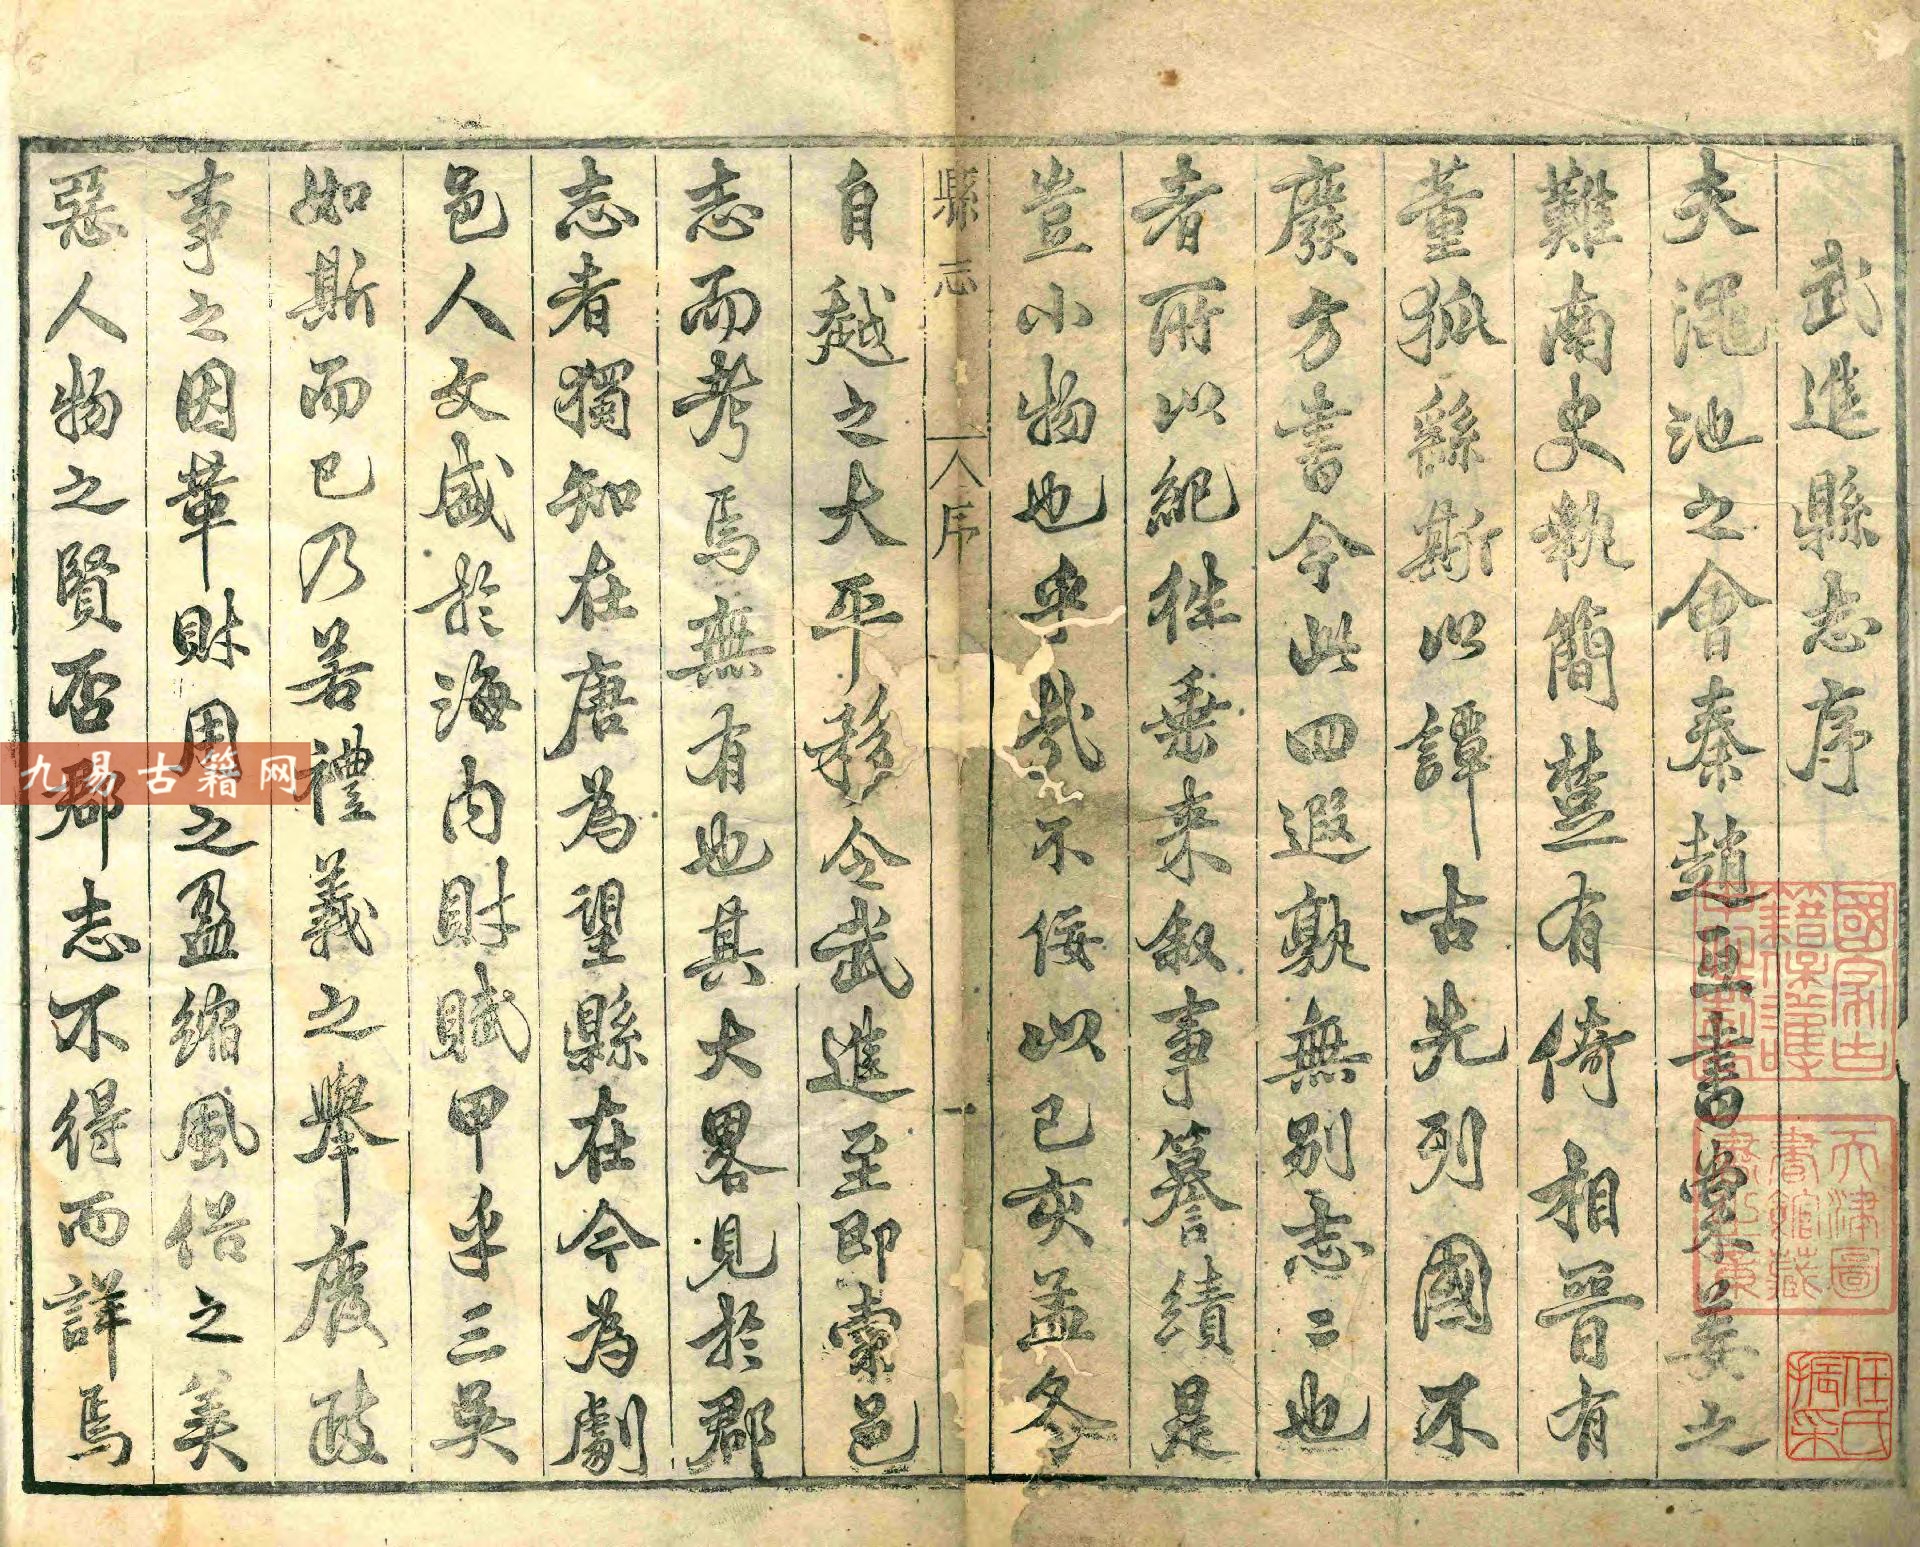 武進縣志序
夫澠池之會秦趙互書棠姜之
難南史執簡楚有倚相晉有
董狐繇斯以譚古先列國不
廢方書今此四遐孰無別志二也
者所以紀往垂來叙事謩績是
豈小物也乎哉不佞以己亥孟冬
縣志
序
一
自越之大平移令武進至即索邑
志而考焉無有也其大畧見於郡
志者獨知在唐為望縣在今為劇
邑人文盛於海內財賦甲乎三吳
如斯而已乃若禮義之舉廢政
事之因革財用之盈縮風俗之美
惡人物之賢否郡志不得而詳焉
任氏
振采
九易古籍网